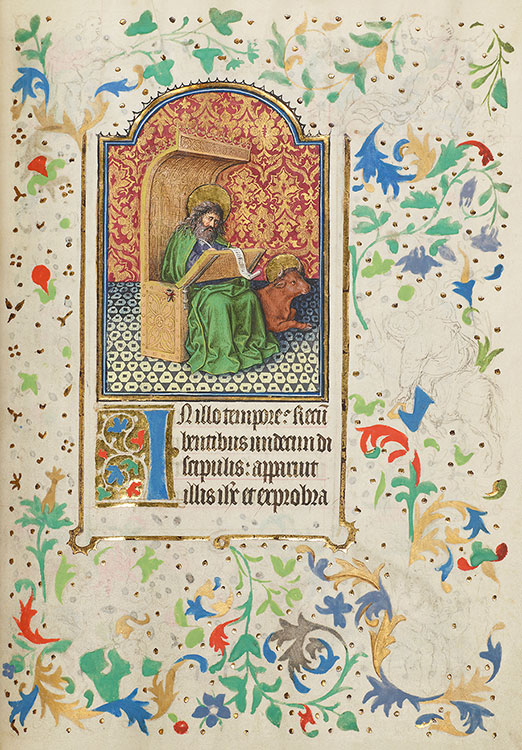 IN illo tempore: Recū
bentibus undecim di
scipulis: apparuit
illis ihc̄ et exprobra